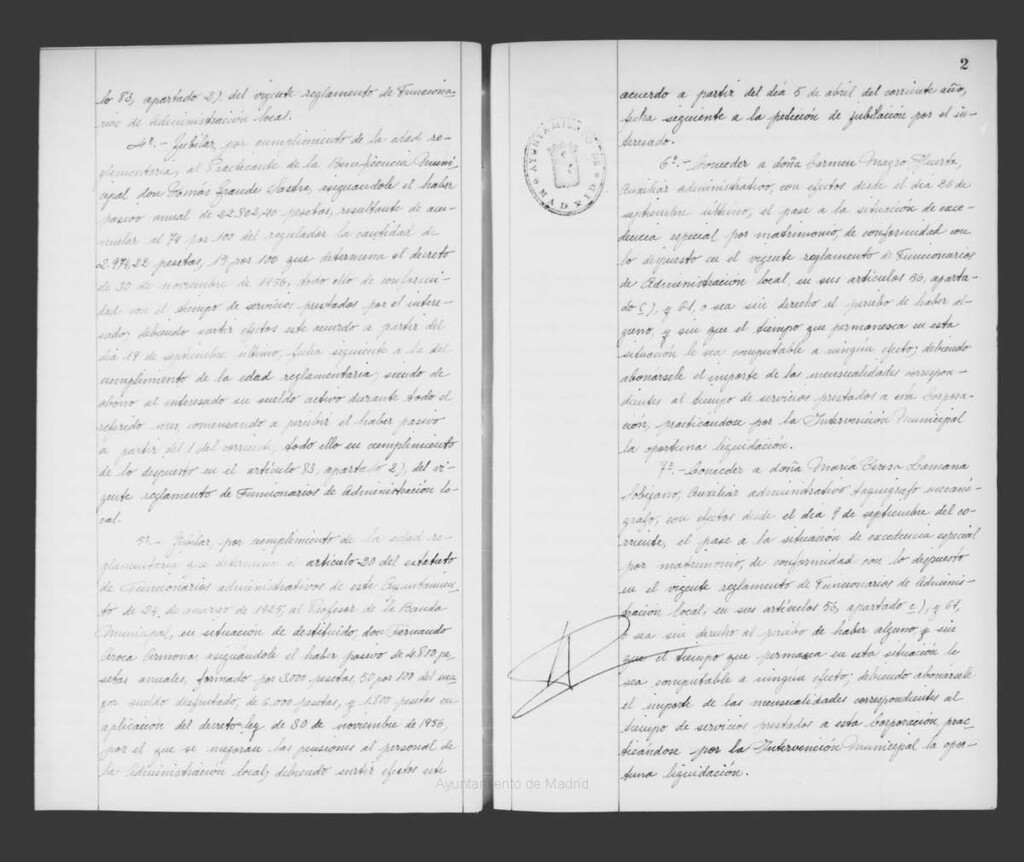 lo 83, apartado 2) del vigente reglamento de Funciona-
rios de Administración local.
4º.- Jubilar, por cumplimiento de la edad re-
glamentaria, al Practicante de la Beneficencia Munici-
pal don Tomás Grande Sastre, asignándole el haber
pasivo anual de 22.802,40 pesetas, resultante de acu-
mular al 78 por 100 del regulador la cantidad de
2.974,22 pesetas, 15 por 100 que determina el decreto
de 30 de noviembre de 1956, todo ello de conformi-
dad con el tiempo de servicios prestados por el intere-
sado; debiendo surtir efectos este acuerdo a partir del
día 19 de septiembre último, fecha siguiente a la del
cumplimiento de la edad reglamentaria, siendo de
abono al interesado su sueldo activo durante todo el
referido mes, comenzando a percibir el haber pasivo
a partir del 1 del corriente, todo ello en cumplimiento
de lo dispuesto en el artículo 83, apartado 2), del vi-
gente reglamento de Funcionarios de Administración lo-
cal.
5º.- Jubilar, por cumplimiento de la edad re-
glamentaria que determina el artículo 20 del estatuto
de Funcionarios administrativos de este Ayuntamien-
to de 24 de marzo de 1925, al Profesor de la Banda
Municipal, en situación de destituido, don Fernando
Aroca Armona, asignándole el haber pasivo de 4.800 pe-
setas anuales, formado por 3.000 pesetas, 50 por 100 del ma-
yor sueldo disfrutado, de 6.000 pesetas, y 1.800 pesetas en
aplicación del decreto-ley de 30 de noviembre de 1956,
por el que se mejoran las pensiones al personal de
la Administración local; debiendo surtir efectos este
2
AYUNTAMIENTO DE MADRID
acuerdo a partir del día 5 de abril del corriente año,
fecha siguiente a la petición de jubilación por el in-
teresado.
6º.- Conceder a doña Carmen Negro Huerta,
Auxiliar administrativo, con efectos desde el día 26 de
septiembre último, el pase a la situación de exce-
dencia especial por matrimonio, de conformidad con
lo dispuesto en el vigente reglamento de Funcionarios
de Administración local, en sus artículos 56, aparta-
do c), y 61, o sea sin derecho al percibo de haber al-
guno, y sin que el tiempo que permanezca en esta
situación le sea computable a ningún efecto; debiendo
abonársele el importe de las mensualidades correspon-
dientes al tiempo de servicios prestados a esta Corpora-
ción, practicándose por la Intervención Municipal
la oportuna liquidación.
7º.- Conceder a doña María Teresa Lamana
Sobejano, Auxiliar administrativo taquígrafo mecanó-
grafo, con efectos desde el día 9 de septiembre del co-
rriente, el pase a la situación de excedencia especial
por matrimonio, de conformidad con lo dispuesto
en el vigente reglamento de Funcionarios de Adminis-
tración local, en sus artículos 56, apartado c), y 61,
o sea sin derecho al percibo de haber alguno, y sin
que el tiempo que permanezca en esta situación le
sea computable a ningún efecto; debiendo abonársele
el importe de las mensualidades correspondientes al
tiempo de servicios prestados a esta Corporación, prac-
ticándose por la Intervención Municipal la opor-
tuna liquidación.
Ayuntamiento de Madrid